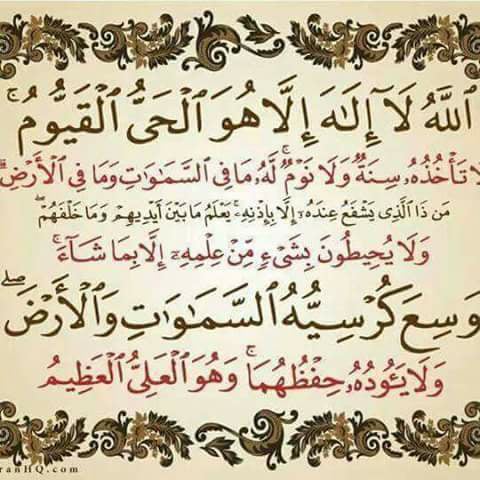 ٱللَّهُ لَآ إِلَـٰهَ إِلَّا هُوَ ٱلْحَىُّ ٱلْقَيُّومُ ۚ
لَا تَأْخُذُهُۥ سِنَةٌ وَلَا نَوْمٌ ۚ لَّهُۥ مَا فِى ٱلسَّمَـٰوَٰتِ وَمَا فِى ٱلْأَرْضِ ۗ
مَن ذَا ٱلَّذِى يَشْفَعُ عِندَهُۥٓ إِلَّا بِإِذْنِهِۦ ۚ يَعْلَمُ مَا بَيْنَ أَيْدِيهِمْ وَمَا خَلْفَهُمْ ۖ
وَلَا يُحِيطُونَ بِشَىْءٍ مِّنْ عِلْمِهِۦٓ إِلَّا بِمَا شَآءَ ۚ
وَسِعَ كُرْسِيُّهُ ٱلسَّمَـٰوَٰتِ وَٱلْأَرْضَ ۖ
وَلَا يَـُٔودُهُۥ حِفْظُهُمَا ۚ وَهُوَ ٱلْعَلِىُّ ٱلْعَظِيمُ
ranHQ.com